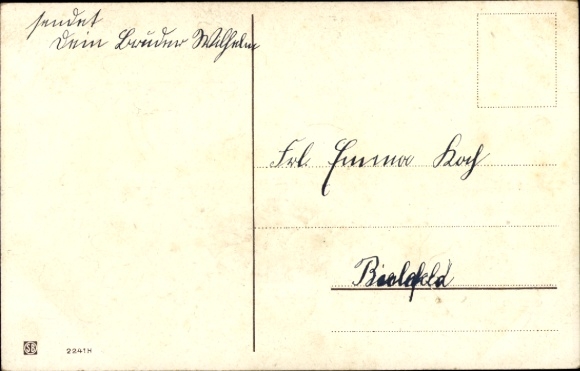 sendet
Dein Bruder Wilhelm
Frl. Emma Koch
Bielefeld
SB 2241H